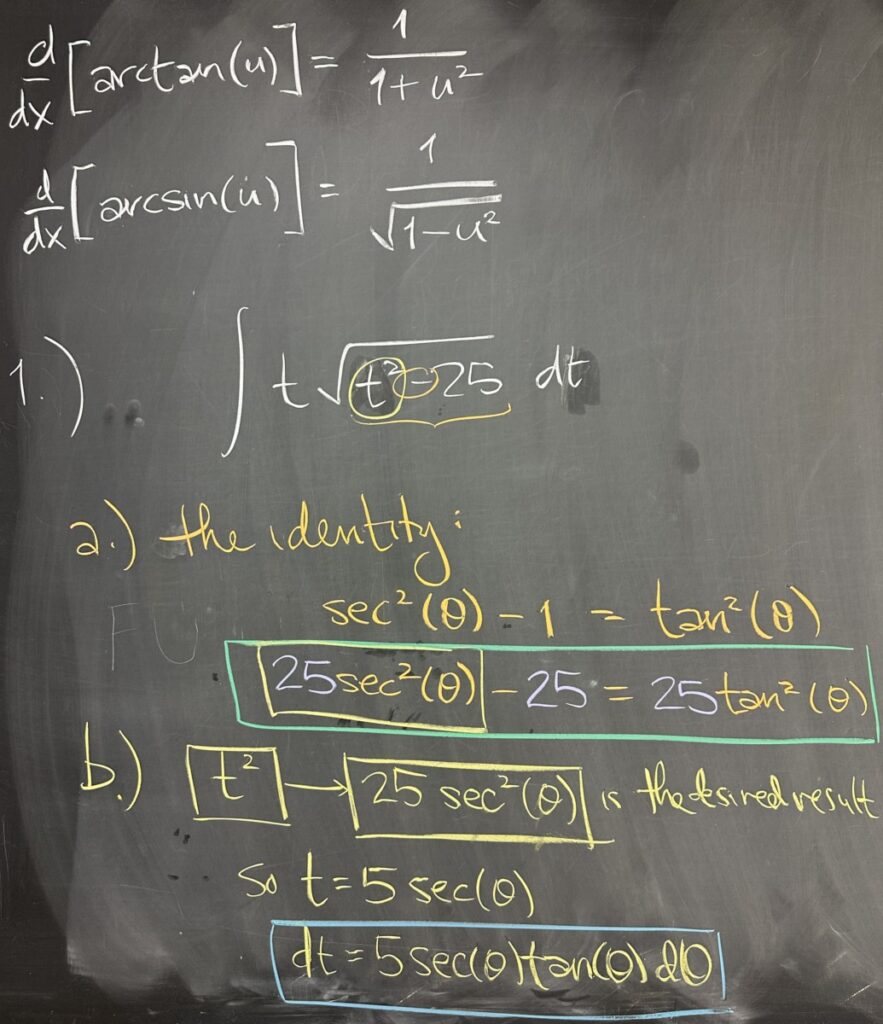 d/dx [arctan(u)] = 1/(1+u²)
d/dx [arcsin(u)] = 1/√(1-u²)
1.) ∫ t√(t²-25) dt
a.) the identity:
sec²(θ) - 1 = tan²(θ)
25sec²(θ) - 25 = 25tan²(θ)
b.) t² → 25 sec²(θ) is the desired result
So t = 5 sec(θ)
dt = 5 sec(θ) tan(θ) dθ